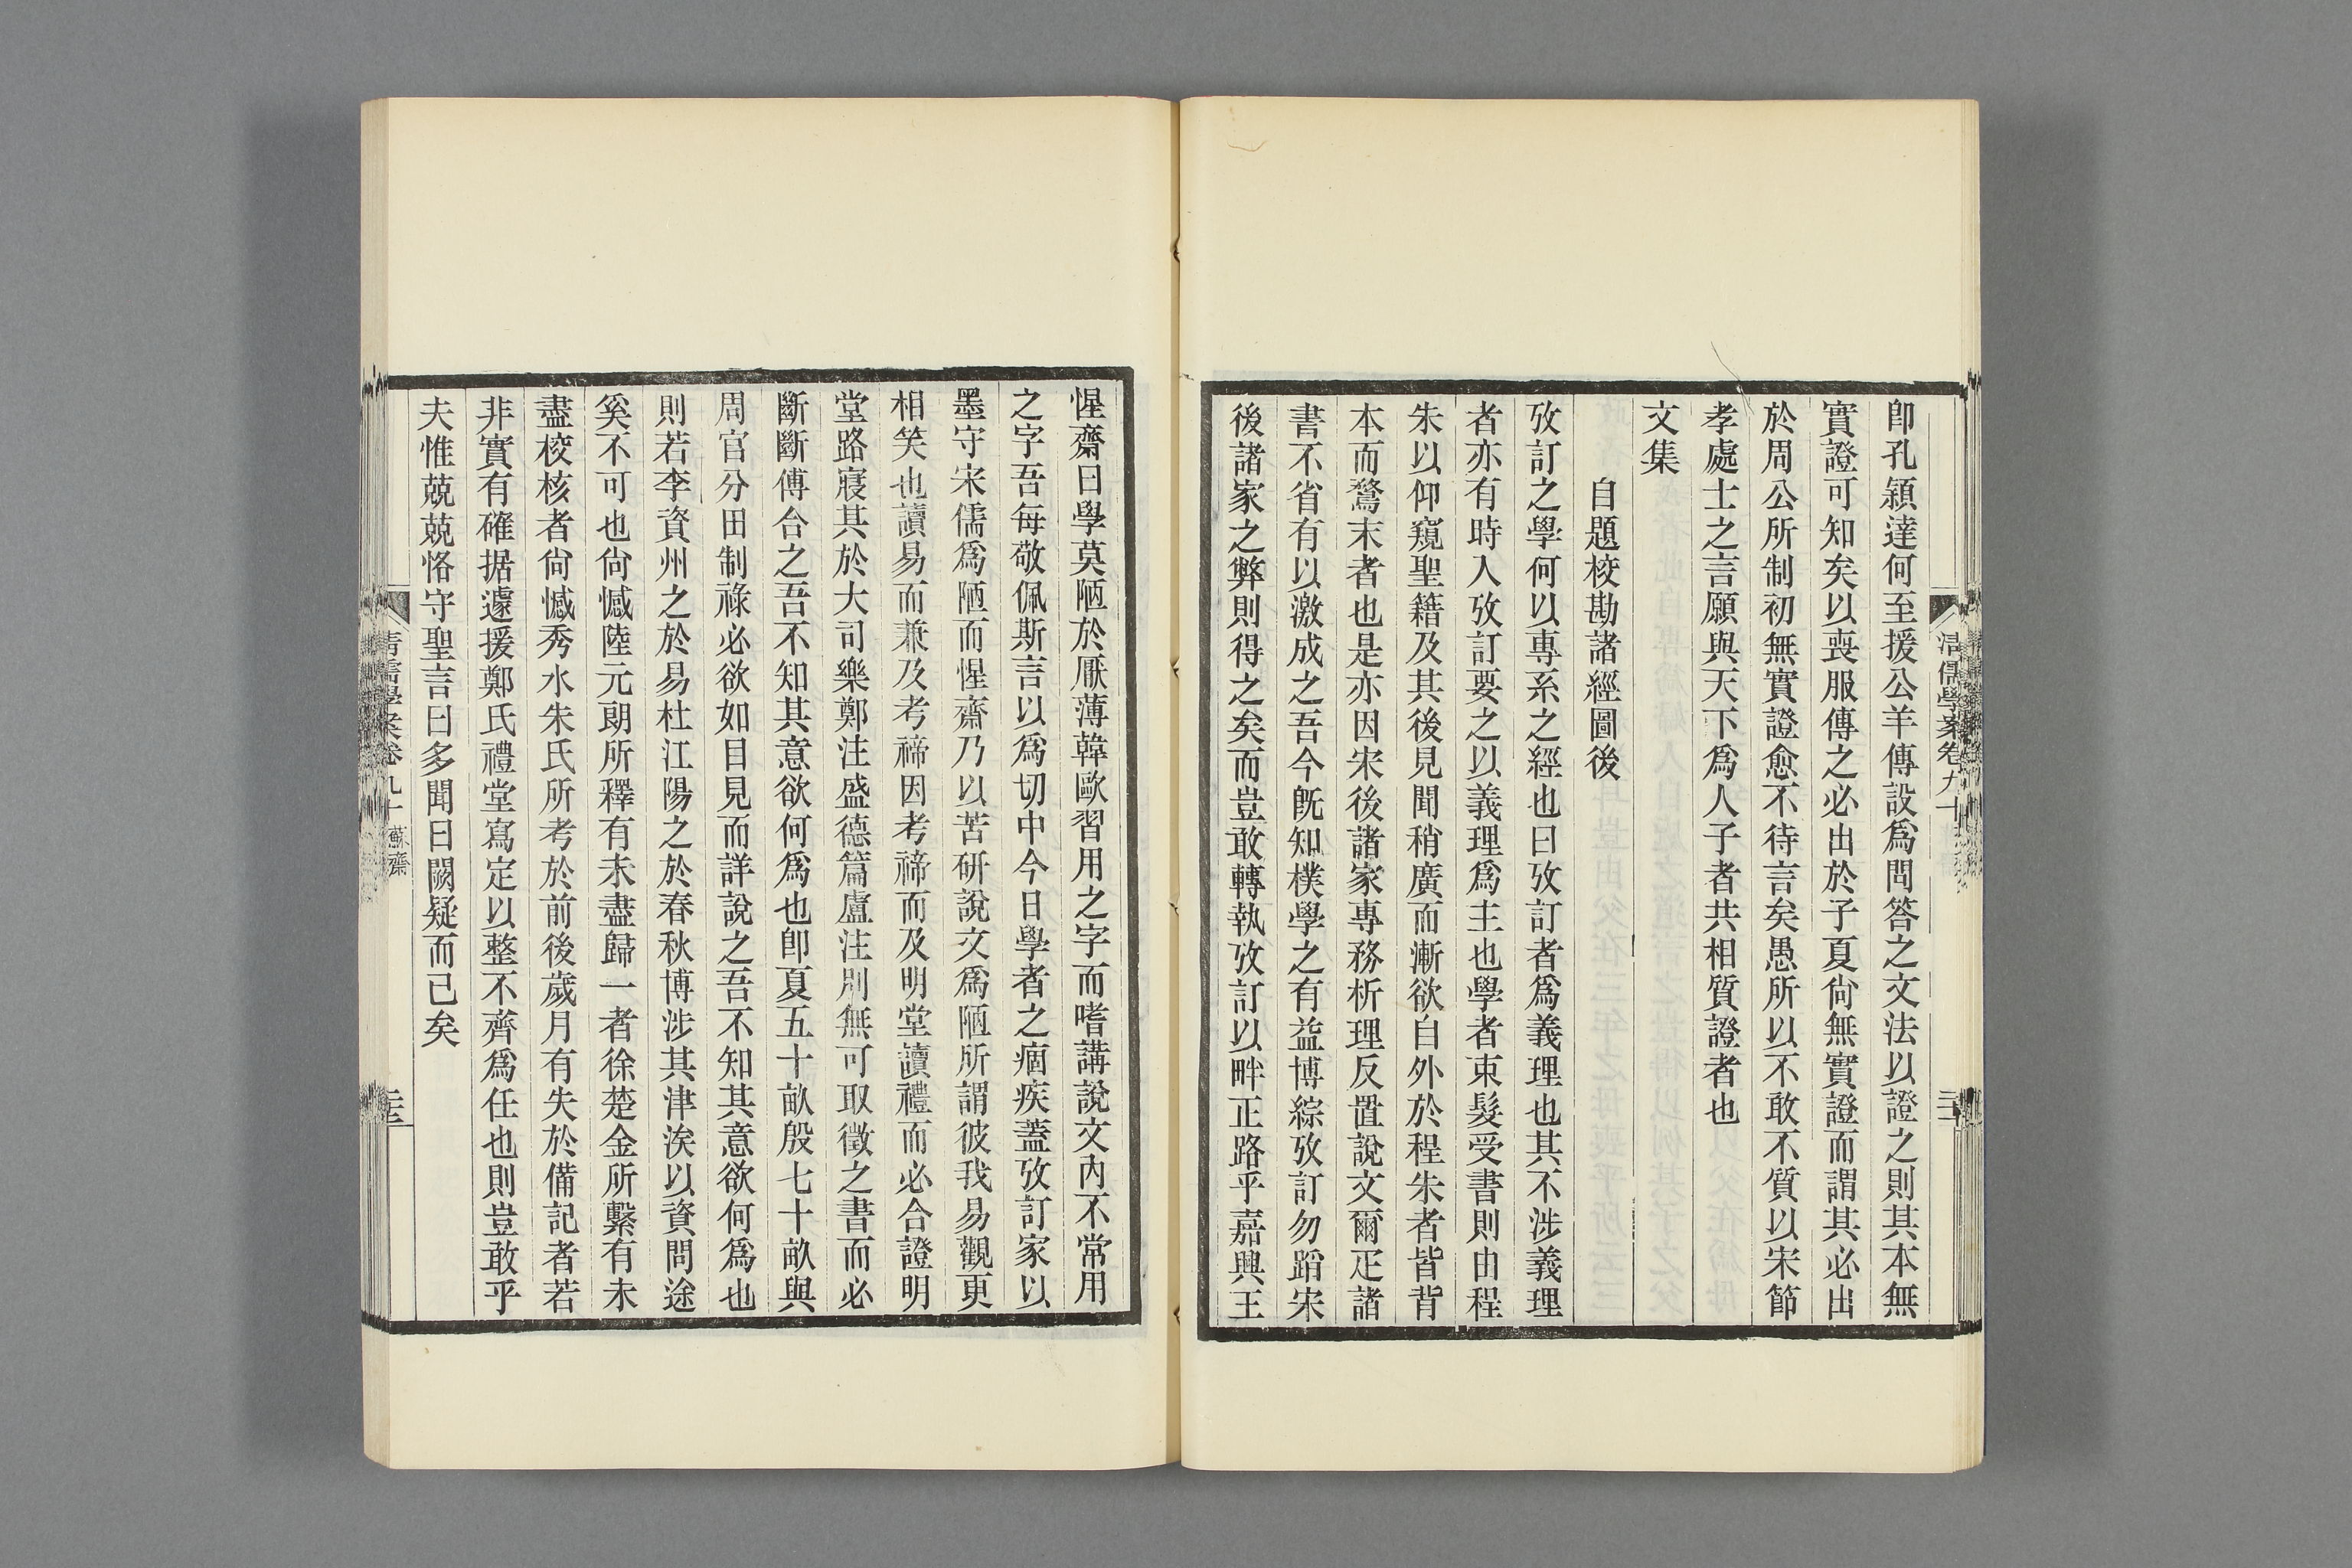 卽孔穎達何至援公羊傳設爲問答之文法以證之則其本無
實證可知矣以喪服傳之必出於子夏尙無實證而謂其必出
於周公所制初無實證愈不待言矣愚所以不敢不質以宋節
孝處士之言願與天下爲人子者共相質證者也
文集
自題校勘諸經圖後
攷訂之學何以專系之經也曰攷訂者爲義理也其不涉義理
者亦有時入攷訂要之以義理爲主也學者束髮受書則由程
朱以仰窺聖籍及其後見聞稍廣而漸欲自外於程朱者皆背
本而騖末者也是亦因宋後諸家專務析理反置說文爾疋諸
書不省有以激成之吾今旣知樸學之有益博綜攷訂勿蹈宋
後諸家之弊則得之矣而豈敢轉執攷訂以畔正路乎嘉興王
惺齋曰學莫陋於厭薄韓歐習用之字而嗜講說文內不常用
之字吾每敬佩斯言以爲切中今日學者之痼疾蓋攷訂家以
墨守宋儒爲陋而惺齋乃以苦研說文爲陋所謂彼我易觀更
相笑也讀易而兼及考禘因考禘而及明堂讀禮而必合證明
堂路寢其於大司樂鄭注盛德篇盧注別無可取徵之書而必
斷斷傅合之吾不知其意欲何爲也卽夏五十畝殷七十畝與
周官分田制祿必欲如目見而詳說之吾不知其意欲何爲也
則若李資州之於易杜江陽之於春秋博涉其津涘以資問途
奚不可也尙憾陸元朗所釋有未盡歸一者徐楚金所繫有未
盡校核者尙憾秀水朱氏所考於前後歲月有失於備記者若
非實有確据遽援鄭氏禮堂寫定以整不齊爲任也則豈敢乎
夫惟兢兢恪守聖言曰多聞曰闕疑而已矣
清儒學案卷九十 蘇齋